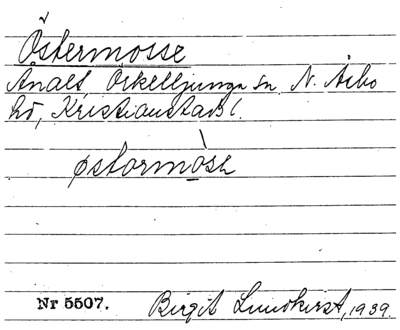 Östermosse
Analt, Örkelljunga sn. N. Åsbo
hd, Kristianstads l.
østərmòsə
Nr 5507. Birgit Lundkvist, 1939.